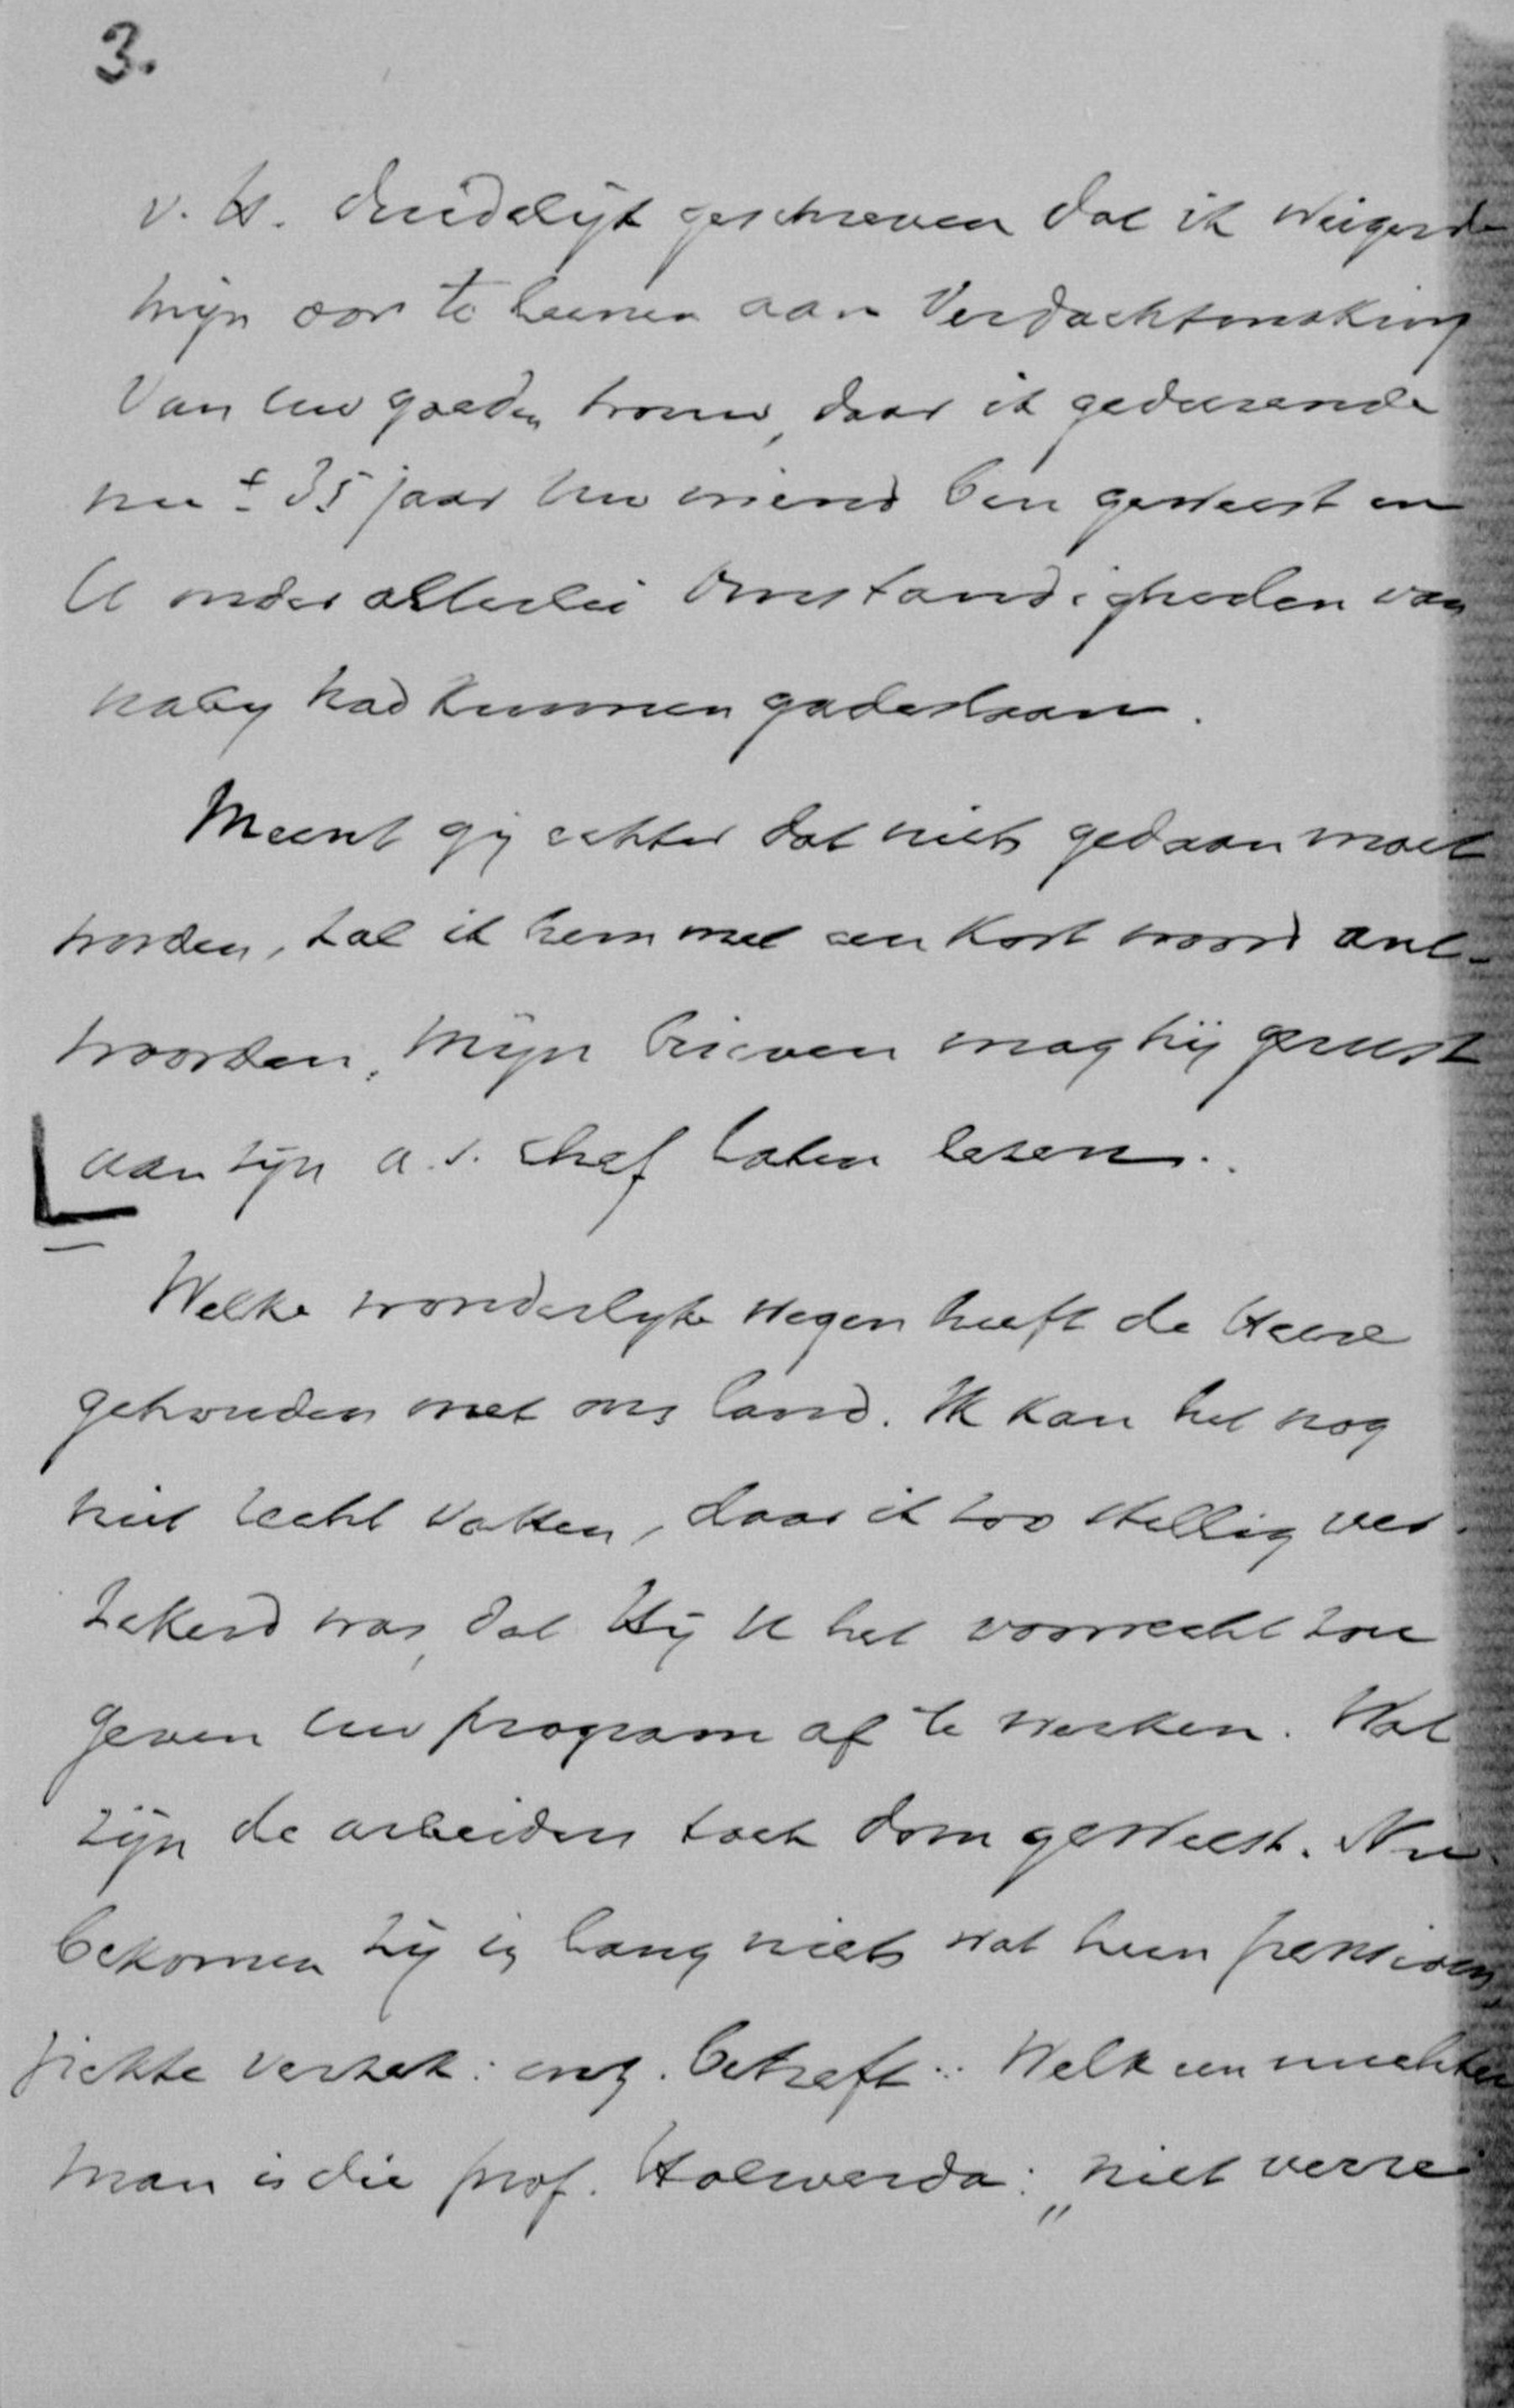 3.
v. H. duidelijk geschreven dat ik weigerde
mijn oor te leenen aan verdachtmaking
van Uw goede trouw, daar ik gedurende
nu ± 35 jaar Uw vriend ben geweest en
U onder allerlei omstandigheden van
naby had kunnen gadeslaan.
Meent gij echter dat niets gedaan moet
worden, zal ik hem met een kort woord ant-
woorden. Mijn brieven mag hij gerust
aan zijn a.s. chef laten lezen.
Welke wonderlyke wegen heeft de Heere
gehouden met ons land. Ik kan het nog
niet recht vatten, daar ik zoo stellig ver-
zekerd was, dat Hij U het voorrecht zou
geven Uw program af te werken. Wat
zijn de arbeiders toch dom geweest. Nu
bekomen zij in lang niets wat hun pensioen
ziekte verzek: enz. betreft. Welk een nuchter
man is die prof. Holwerda: „niet verre